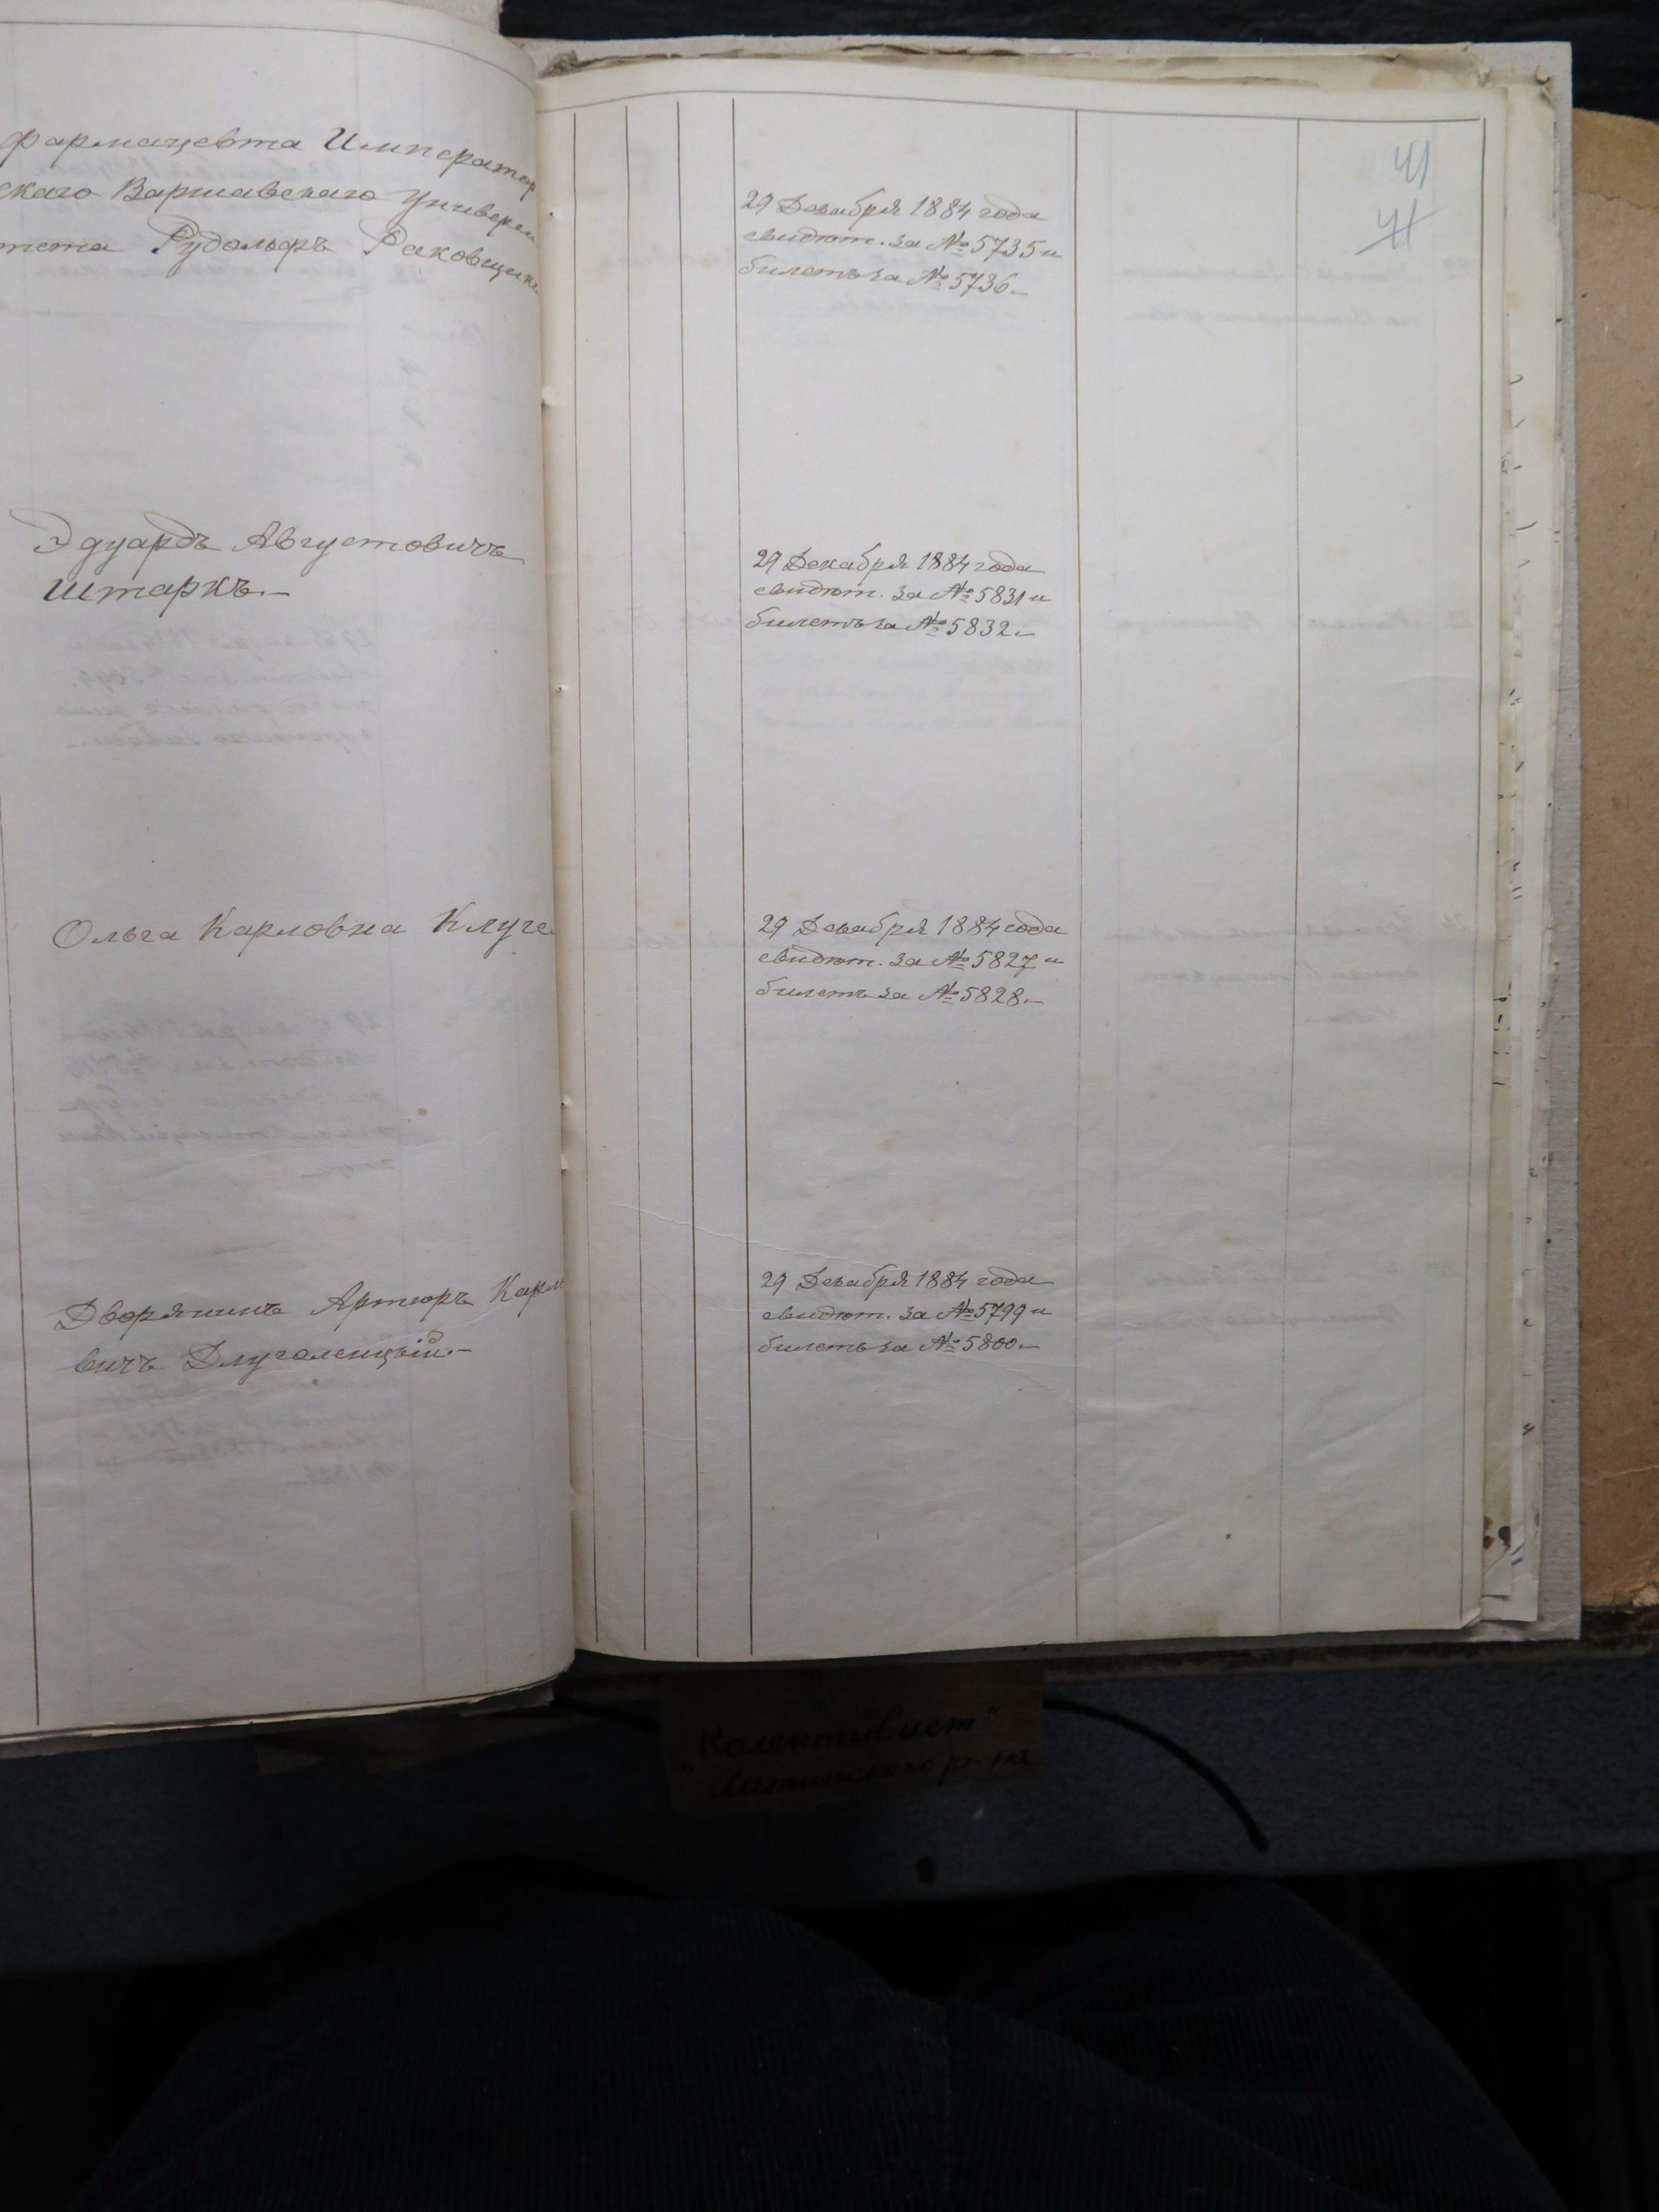 фармацевта Император
скаго Варшавскаго Универси
тета Рудольфъ Раковщик
Эдуардъ Августовичъ
Штаркъ.–
Ольга Карловна Клуге
Дворянинъ Артюръ Карло
вичъ Длуголенцкій.–
41
41
29 Декабря 1884 года
свидѣт. за № 5735 и
билетъ за № 5736.–
29 Декабря 1884 года
свидѣт. за № 5831 и
билетъ за № 5832.–
29 Декабря 1884 года
свидѣт. за № 5827 и
билетъ за № 5828.–
29 Декабря 1884 года
свидѣт. за № 5799 и
билетъ за № 5800.–
"Колективист"
Литинского р-на